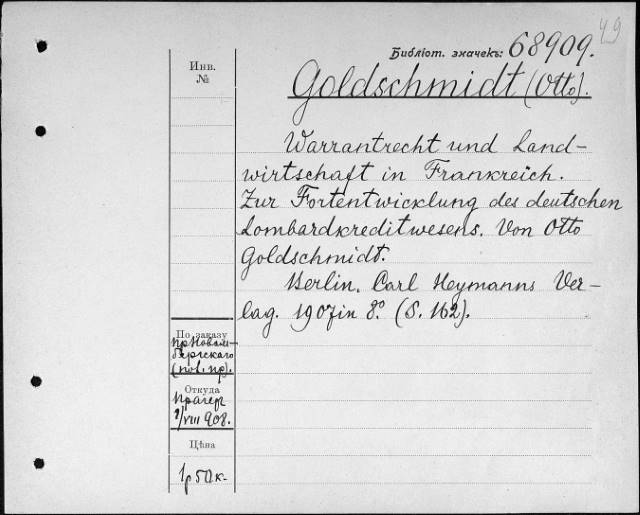 49
Библіот. значекъ: 68909.
Инв.
№
Goldschmidt (Otto).
Warrantrecht und Land-
wirtschaft in Frankreich.
Zur Fortentwicklung des deutschen
Lombardkreditwesens. Von Otto
Goldschmidt.
Berlin. Carl Heymanns Ver-
lag. 1907 in 8.° (S. 162).
По заказу
пр
(пол. пр).
Откуда
Прагер
1/VIII 908.
Цѣна
1 р 50 к-